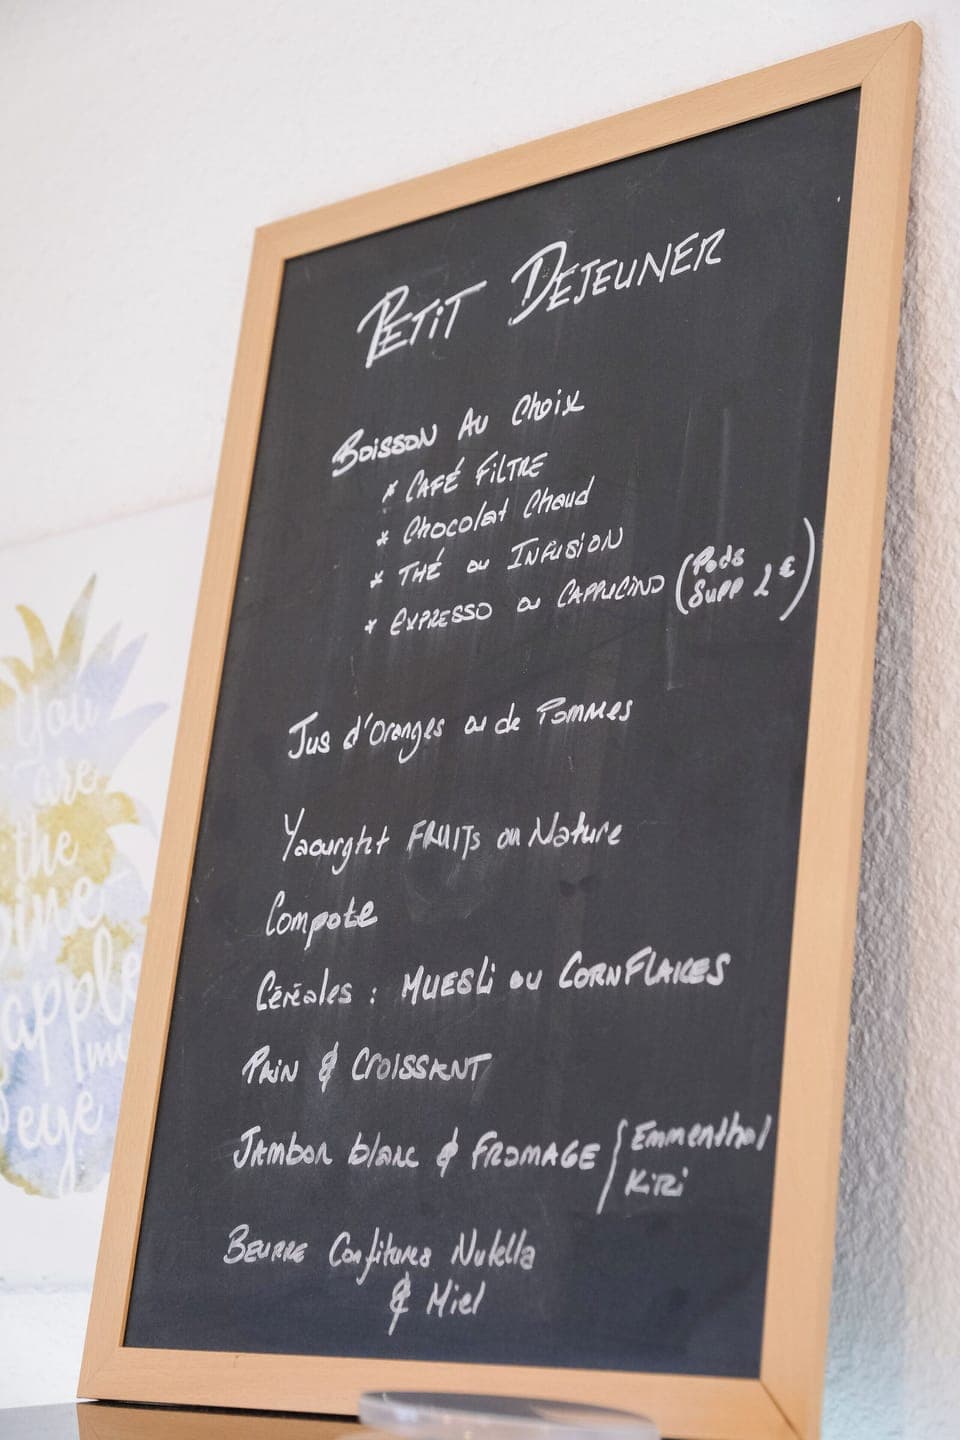 PETIT DEJEUNER
BOISSON AU Choix
* CAFÉ FILTRE
* Chocolat Chaud
* THÉ ou INFUSION
* EXPRESSO ou CAPPUCINO (Pods
Supp 2 €)
Jus d'Oranges ou de Pommes
Yaourght FRUITS ou Nature
Compote
Céréales : MUESLi ou CORNFLAKES
PAIN & CROISSANT
JAMBON blanc & FROMAGE { Emmenthal
KiRi
BEURRE Confitures Nutella
& Miel
You
are
the
pine
apple
my
eye